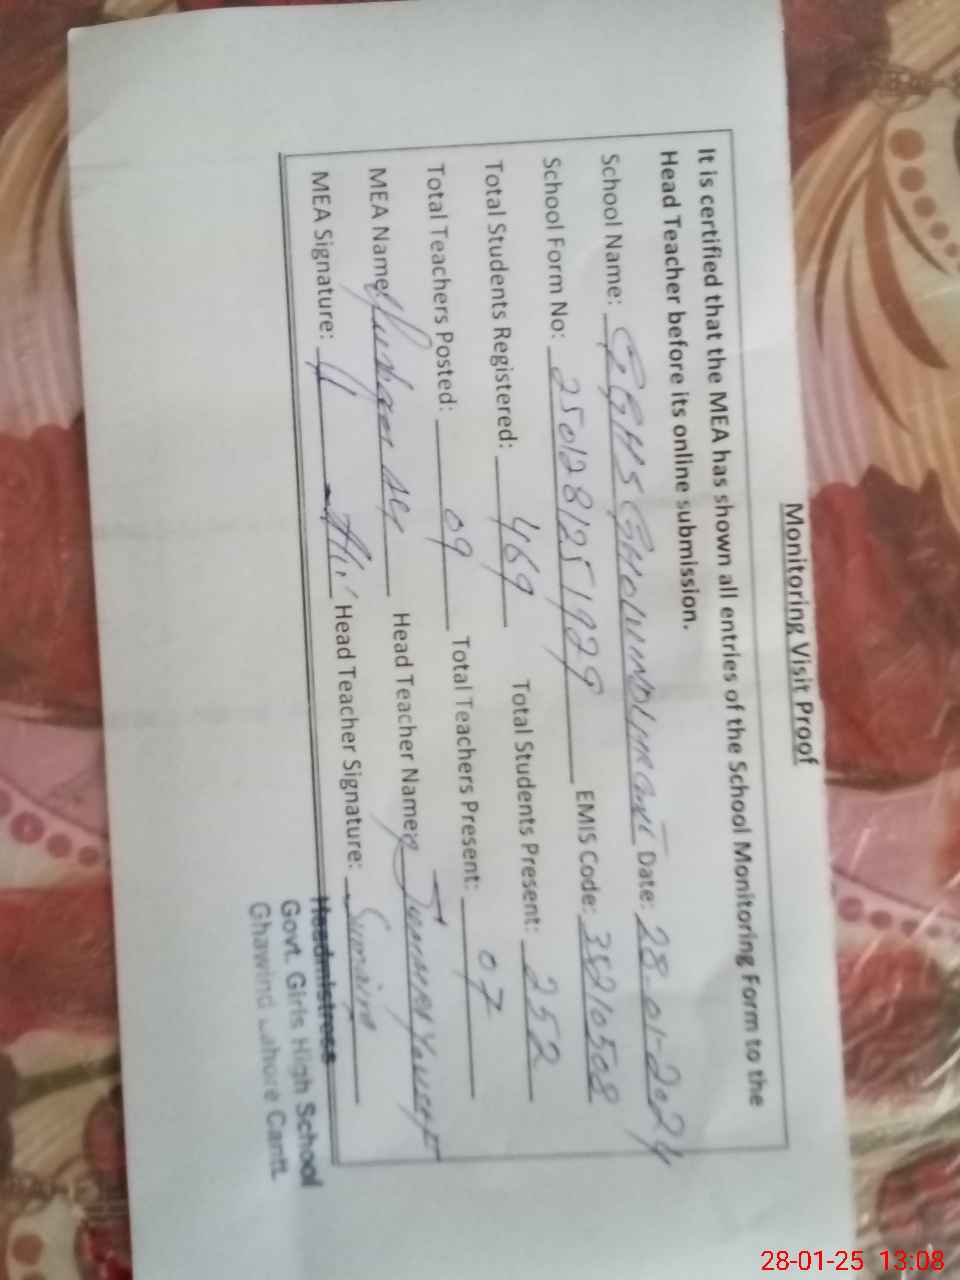 Monitoring Visit Proof
It is certified that the MEA has shown all entries of the School Monitoring Form to the
Head Teacher before its online submission.
School Name: GGHS GHOWIND Date: 28-01-2024
School Form No: 2501281251929 EMIS Code: 35210508
Total Students Registered: 469 Total Students Present: 252
Total Teachers Posted: 09 Total Teachers Present: 07
MEA Name: Head Teacher Name: Yousaf
MEA Signature: Head Teacher Signature: Sumaira
Headmistress
Govt. Girls High School
Ghawind Lahore Cantt.
28-01-25 13:08